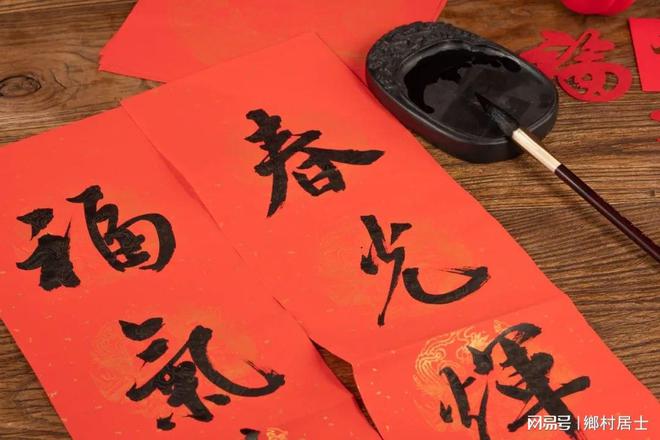 福
春光輝
福氣
网易号 | 鄉村居士